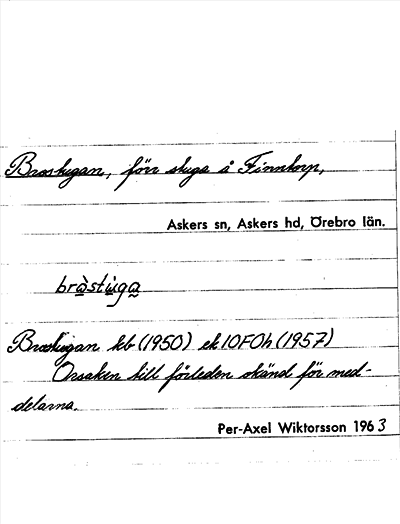 Brostugan, förr stuga å Finntorp,
Askers sn, Askers hd, Örebro län.
bròstùga
Brostugan kb (1950) ek 10F0h (1957)
Orsaken till förleden okänd för med-
delarna.
Per-Axel Wiktorsson 1963